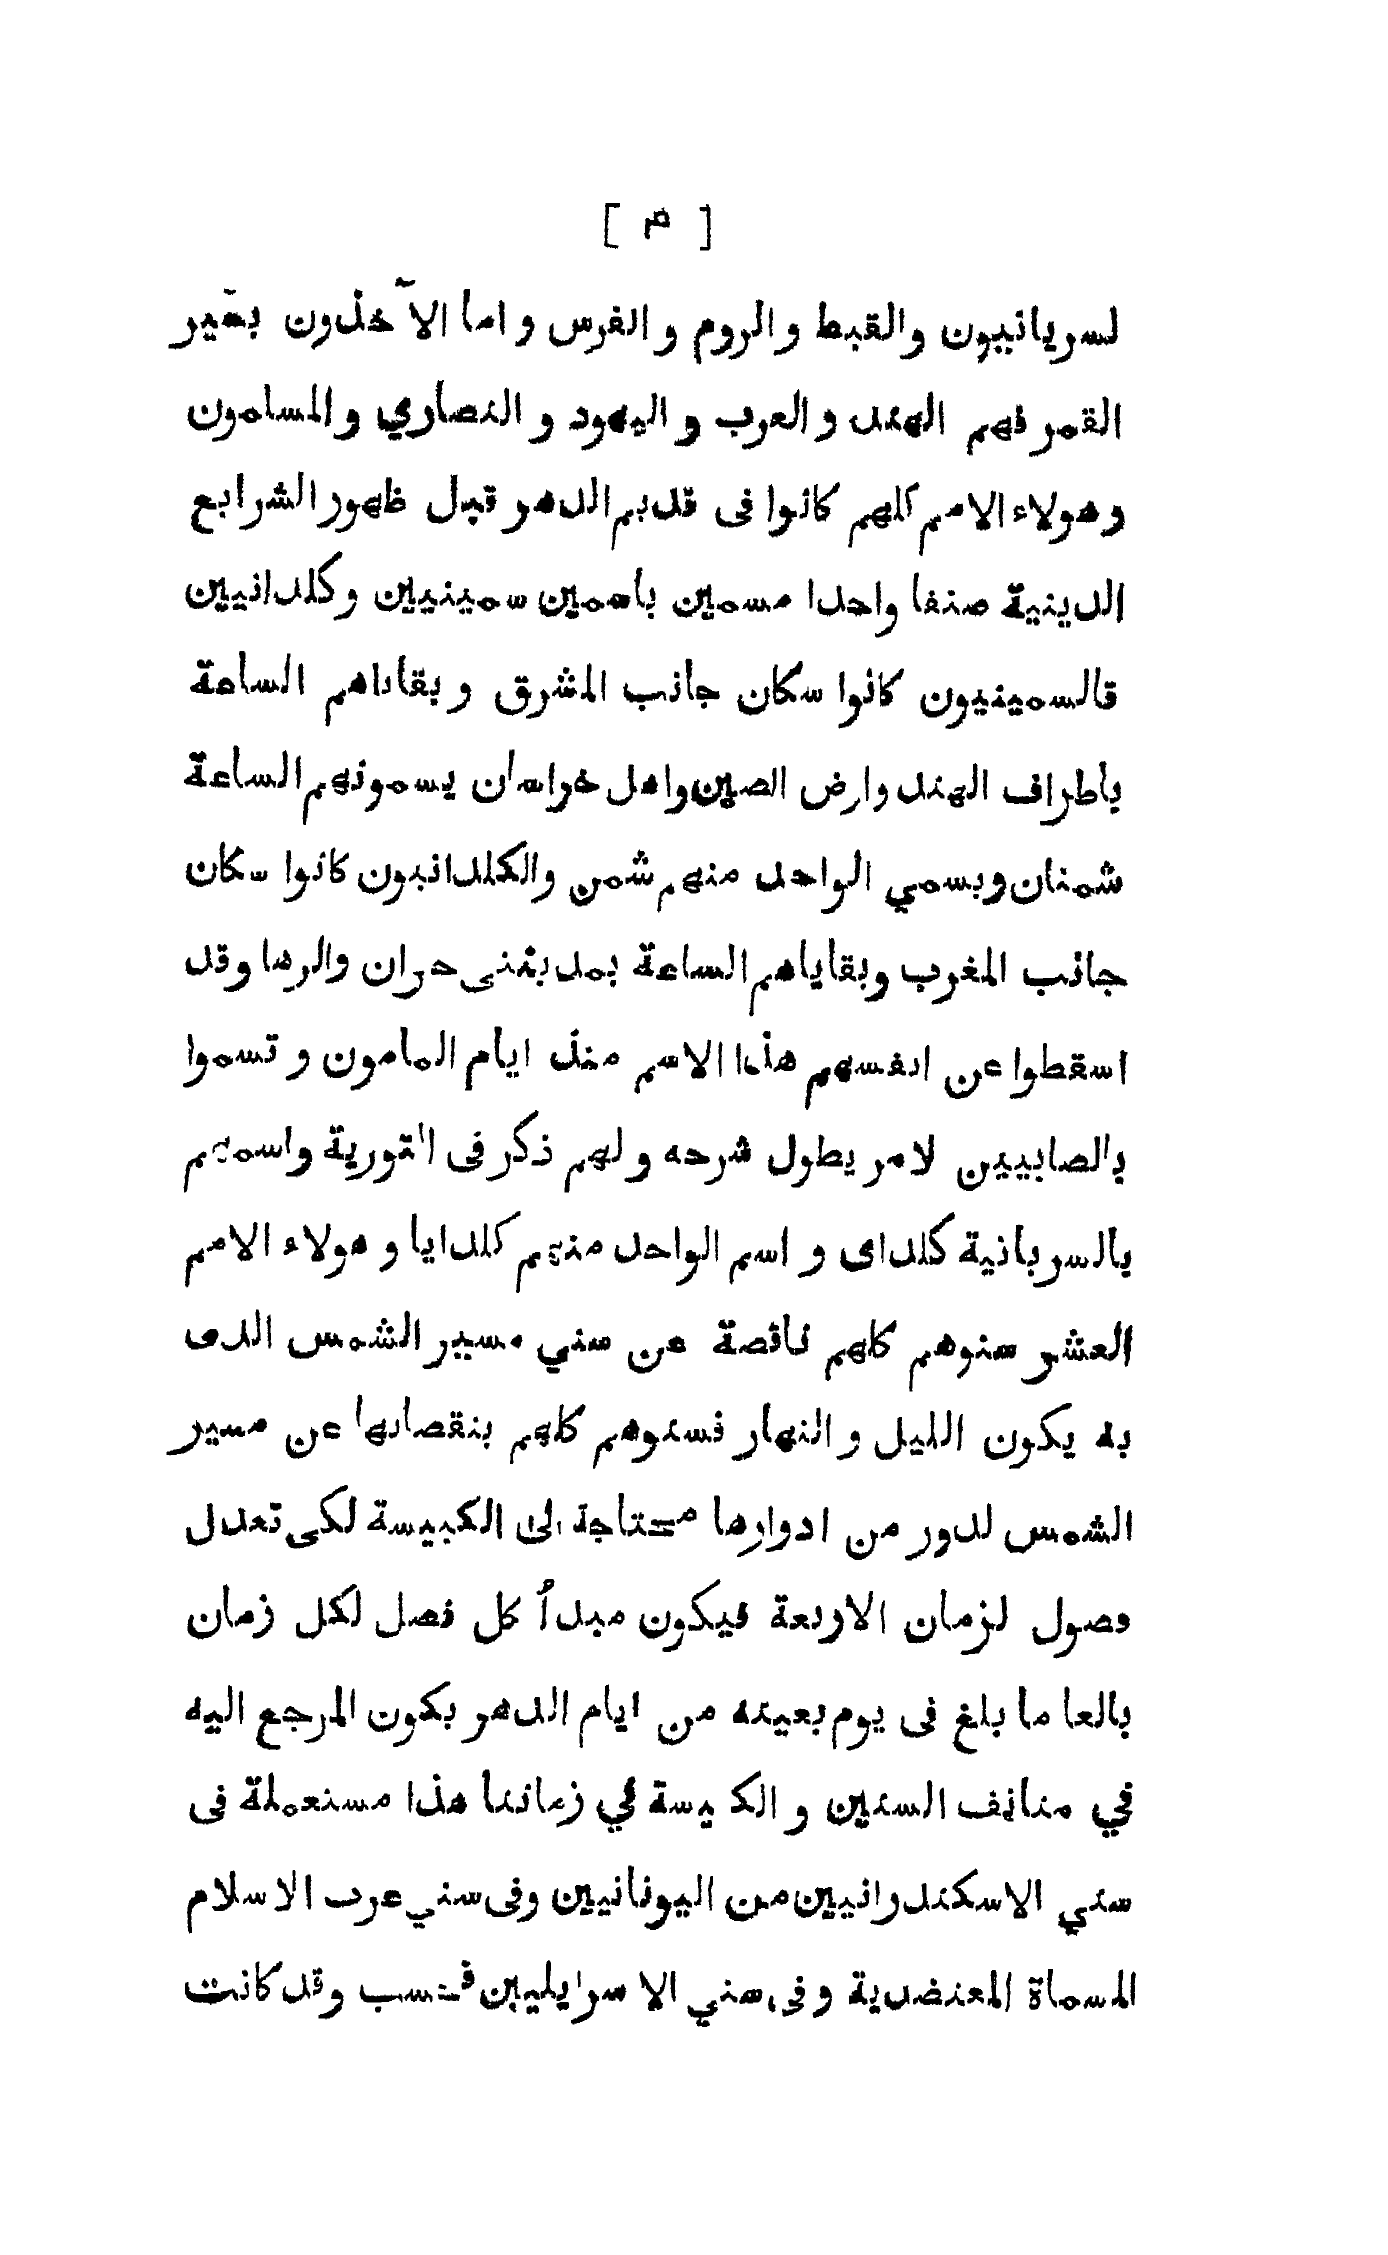 [ ٣ ]
لسريانيون والقبط و الروم و الفرس و اما الآخذون بمسير
القمر فهم الهند و العرب و اليهود و النصاري و المسلمون
وهولاء الامم كلهم كانوا فى قديم الدهر قبل ظهور الشرايع
الدينية صنفا واحدا مسمين باسمين سمينيين وكلدانيين
فالسمينيون كانوا سكان جانب المشرق و بقاياهم الساعة
باطراف الهند وارض الصين واهل خراسان يسمونهم الساعة
شمنان ويسمي الواحد منهم شمن والكلدانيون كانوا سكان
جانب المغرب وبقاياهم الساعة بمدينتى حران والرها وقد
اسقطوا عن انفسهم هذا الاسم منذ ايام المامون و تسموا
بالصابيين لامر يطول شرحه و لهم ذكر فى التورية واسمهم
بالسريانية كلداى و اسم الواحد منهم كلدايا و هولاء الامم
العشر سنوهم كلهم ناقصة عن سني مسير الشمس الدى
به يكون الليل و النهار فسنوهم كلهم بنقصانها عن مسير
الشمس لدور من ادوارها محتاجة الى الكبيسة لكى تعدل
فصول لزمان الاربعة فيكون مبدأ كل فصل لكل زمان
بالعا ما بلغ فى يوم بعينه من ايام الدهر يكون المرجع اليه
في منانف السنين و الكبيسة في زماننا هذا مستعملة فى
سني الاسكندرانيين من اليونانيين وفى سني عرب الاسلام
المسماة المعتضدية و فى سني الاسرايليين فحسب وقد كانت